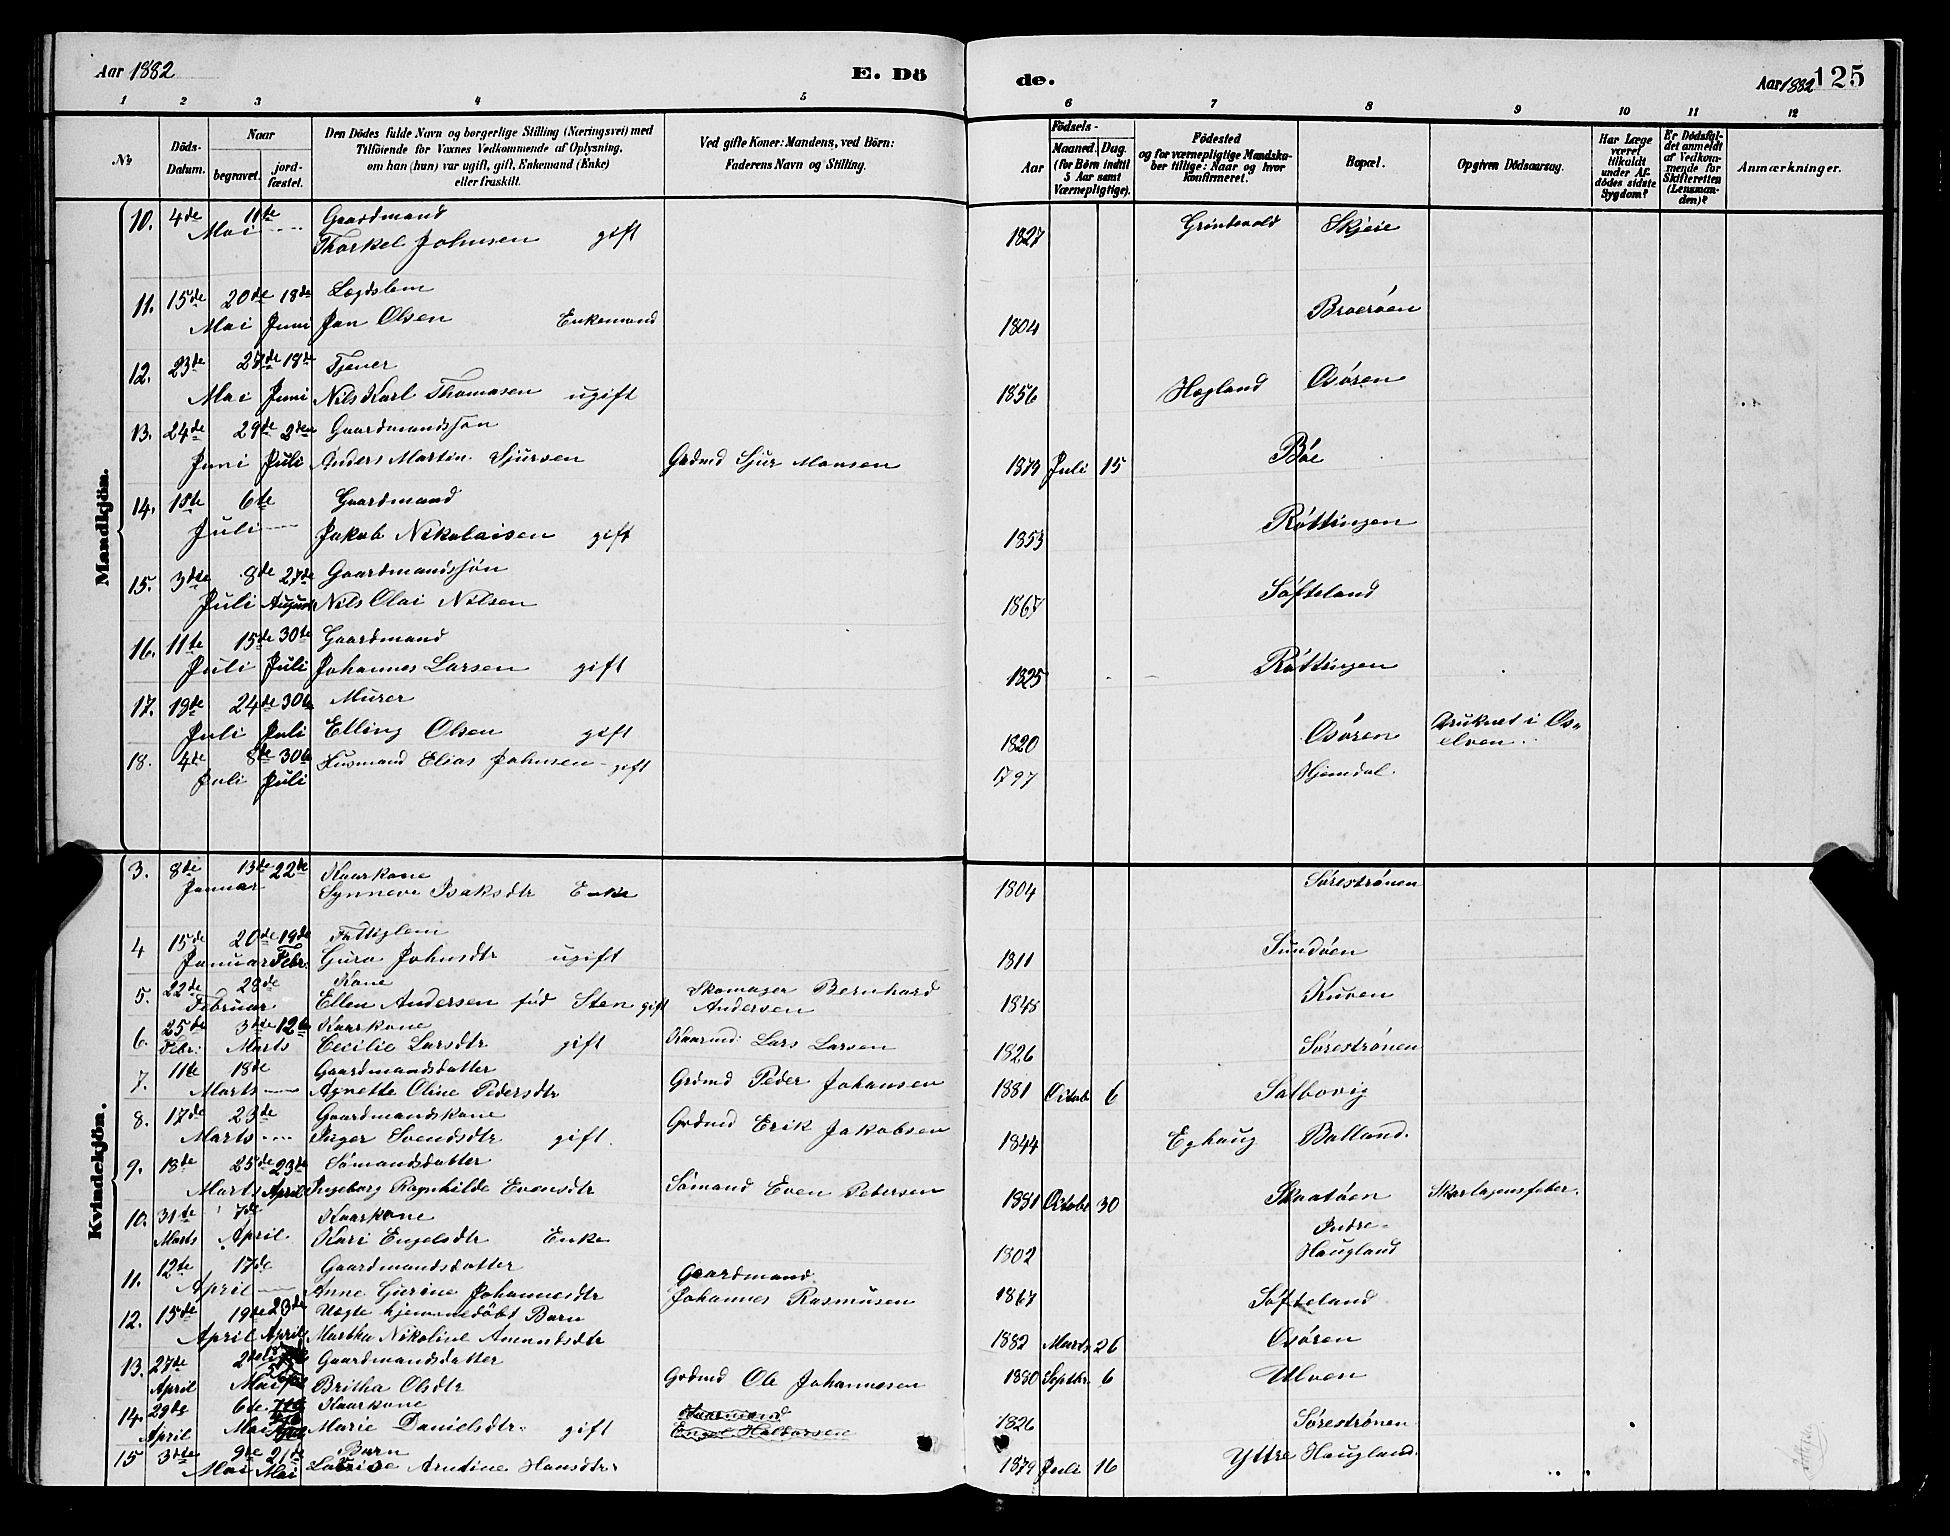 Aar 1882
E. Dö
de.
Aar 1882 125
1 2 3 4 5 6 7 8 9 10 11 12
No
Döds-
Datum.
Naar
begravet.
jord-
fæstet.
Den Dödes fulde Navn og borgerlige Stilling (Næringsvei) med
Tilföiende for Voxnes Vedkommende af Oplysning,
om han (hun) var ugift, gift, Enkemand (Enke)
eller fraskilt.
Ved gifte Koner: Mandens, ved Börn:
Faderens Navn og Stilling.
Födsels-
Aar
Maaned. Dag.
(for Börn indtil
5 Aar samt
Værnepligtige).
Födested
og for værnepligtige Mandska-
ber tillige: Naar og hvor
konfirmeret.
Bopæl.
Opgiven Dödsaarsag.
Har Læge
været
tilkaldt
under Af-
dödes sidste
Sygdom?
Er Dödsfal-
det anmeldt
af Vedkom-
mende for
Skifteretten
(Lensman-
den)?
Anmærkninger.
Mandkjön.
10. 4de Mai 11te Gaardmand
Thorkel Johnsen gift 1827 Grindevold Skjeie
11. 15de Mai 20de 18de Juni Lægdslem
Jon Olsen Enkemand 1804 Broerøen
12. 23de Mai 27de 18de Juni Tjener
Nils Karl Thomasen ugift 1856 Hægland Osøren
13. 24de Juni 29de 2den Juli Gaardmandssøn
Anders Martin Sjursen Grdmd Sjur Monsen 1879 Juli 15 Bøe
14. 18de 6te Juli Gaardmand
Jakob Nikolaisen gift 1853 Røttingen
15. 3die Juli 8de 27de August Gaardmandssøn
Nils Olai Nilsen 1867 Søfteland
16. 11te Juli 15de 30te Juli Gaardmand
Johannes Larsen gift 1825 Røttingen
17. 19de Juli 24de 30te Juli Murer
Elling Olsen gift 1820 Osøren Druknet i Os-
elven.
18. 4de Juli 8de 30te Juli Husmand Elias Johnsen - gift 1797 Hjemdal.
Kvindekjön.
3. 8de Januar 13de 22de Kaarkone
Synneve Isaksdtr Enke 1804 Sørestrønen
4 15de Januar 20de 19de Febr. Fattiglem
Guro Johnsdtr ugift 1811 Sundøen
5. 22de Februar 28de Kone
Ellen Andersen fød Sten gift Skomager Bernhard
Andersen 1848 Kuven
6. 25de Febr. 3die 12te Marts Kaarkone
Cecilie Larsdtr gift Kaarmd. Lars Larsen 1826 Sørestrønen
7. 11te Marts 18de Gaardmandsdatter
Agnette Oline Pedersdtr Grdmd Peder Johansen 1881 Octob 6 Salbovig
8. 17de Marts 23de Gaardmandskone
Inger Svendsdtr gift. Grdmd Erik Jakobsen 1844 Eghaug Balland.
9. 18de Marts 25de 23de April Sømandsdatter
Ingeborg Ragnhilde Evensdtr Sømand Even Petersen 1881 Octob 30 Skaatøen Skarlagensfeber.
10. 31te Marts 7de April Kaarkone
Kari Engelsdtr Enke 1802 Indre-
Haugland
11. 12te April 17de Gaardmandsdatter
Anne Gurine Johannesdtr Gaardmand
Johannes Rasmusen 1867 Søfteland
12. 15de April 19de 23de April Uægte hjemmedøbt Barn
Martha Nikoline Amundsdtr 1882 Marts 26 Osøren
13. 27de April 2den Mai Gaardmandsdatter
Britha Olsdtr Grdmd Ole Johannesen 1880 Septbr. 6 Ulven
14. 29de April 6te Mai Kaarkone
Marie Danielsdtr. gift Kaarmand
Engel Haldorsen 1826 Sørestrønen
15 3die 9de Mai 21de Mai Barn
Arntine Hansdtr. 1879 Juli 16 Yttre Haugland.